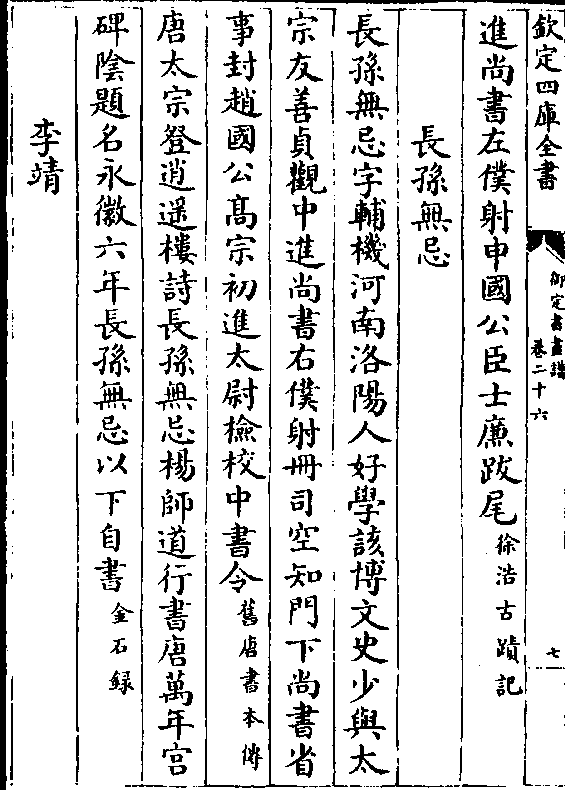 欽定四庫全書
御定書畫譜
卷二十六
七
進尚書左僕射申國公臣士廉跋尾徐浩古蹟記
長孫無忌
長孫無忌字輔機河南洛陽人好學該博文史少與太
宗友善貞觀中進尚書右僕射冊司空知門下尚書省
事封趙國公髙宗初進太尉檢校中書令舊唐書本傳
唐太宗登逍遥樓詩長孫無忌楊師道行書唐萬年宫
碑陰題名永徽六年長孫無忌以下自書金石録
李靖